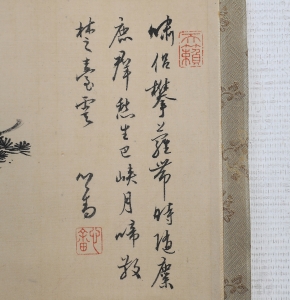 嘯侶攀蘿帶時随麋
鹿群愁生巴峽月啼散
楚臺雲 心畬